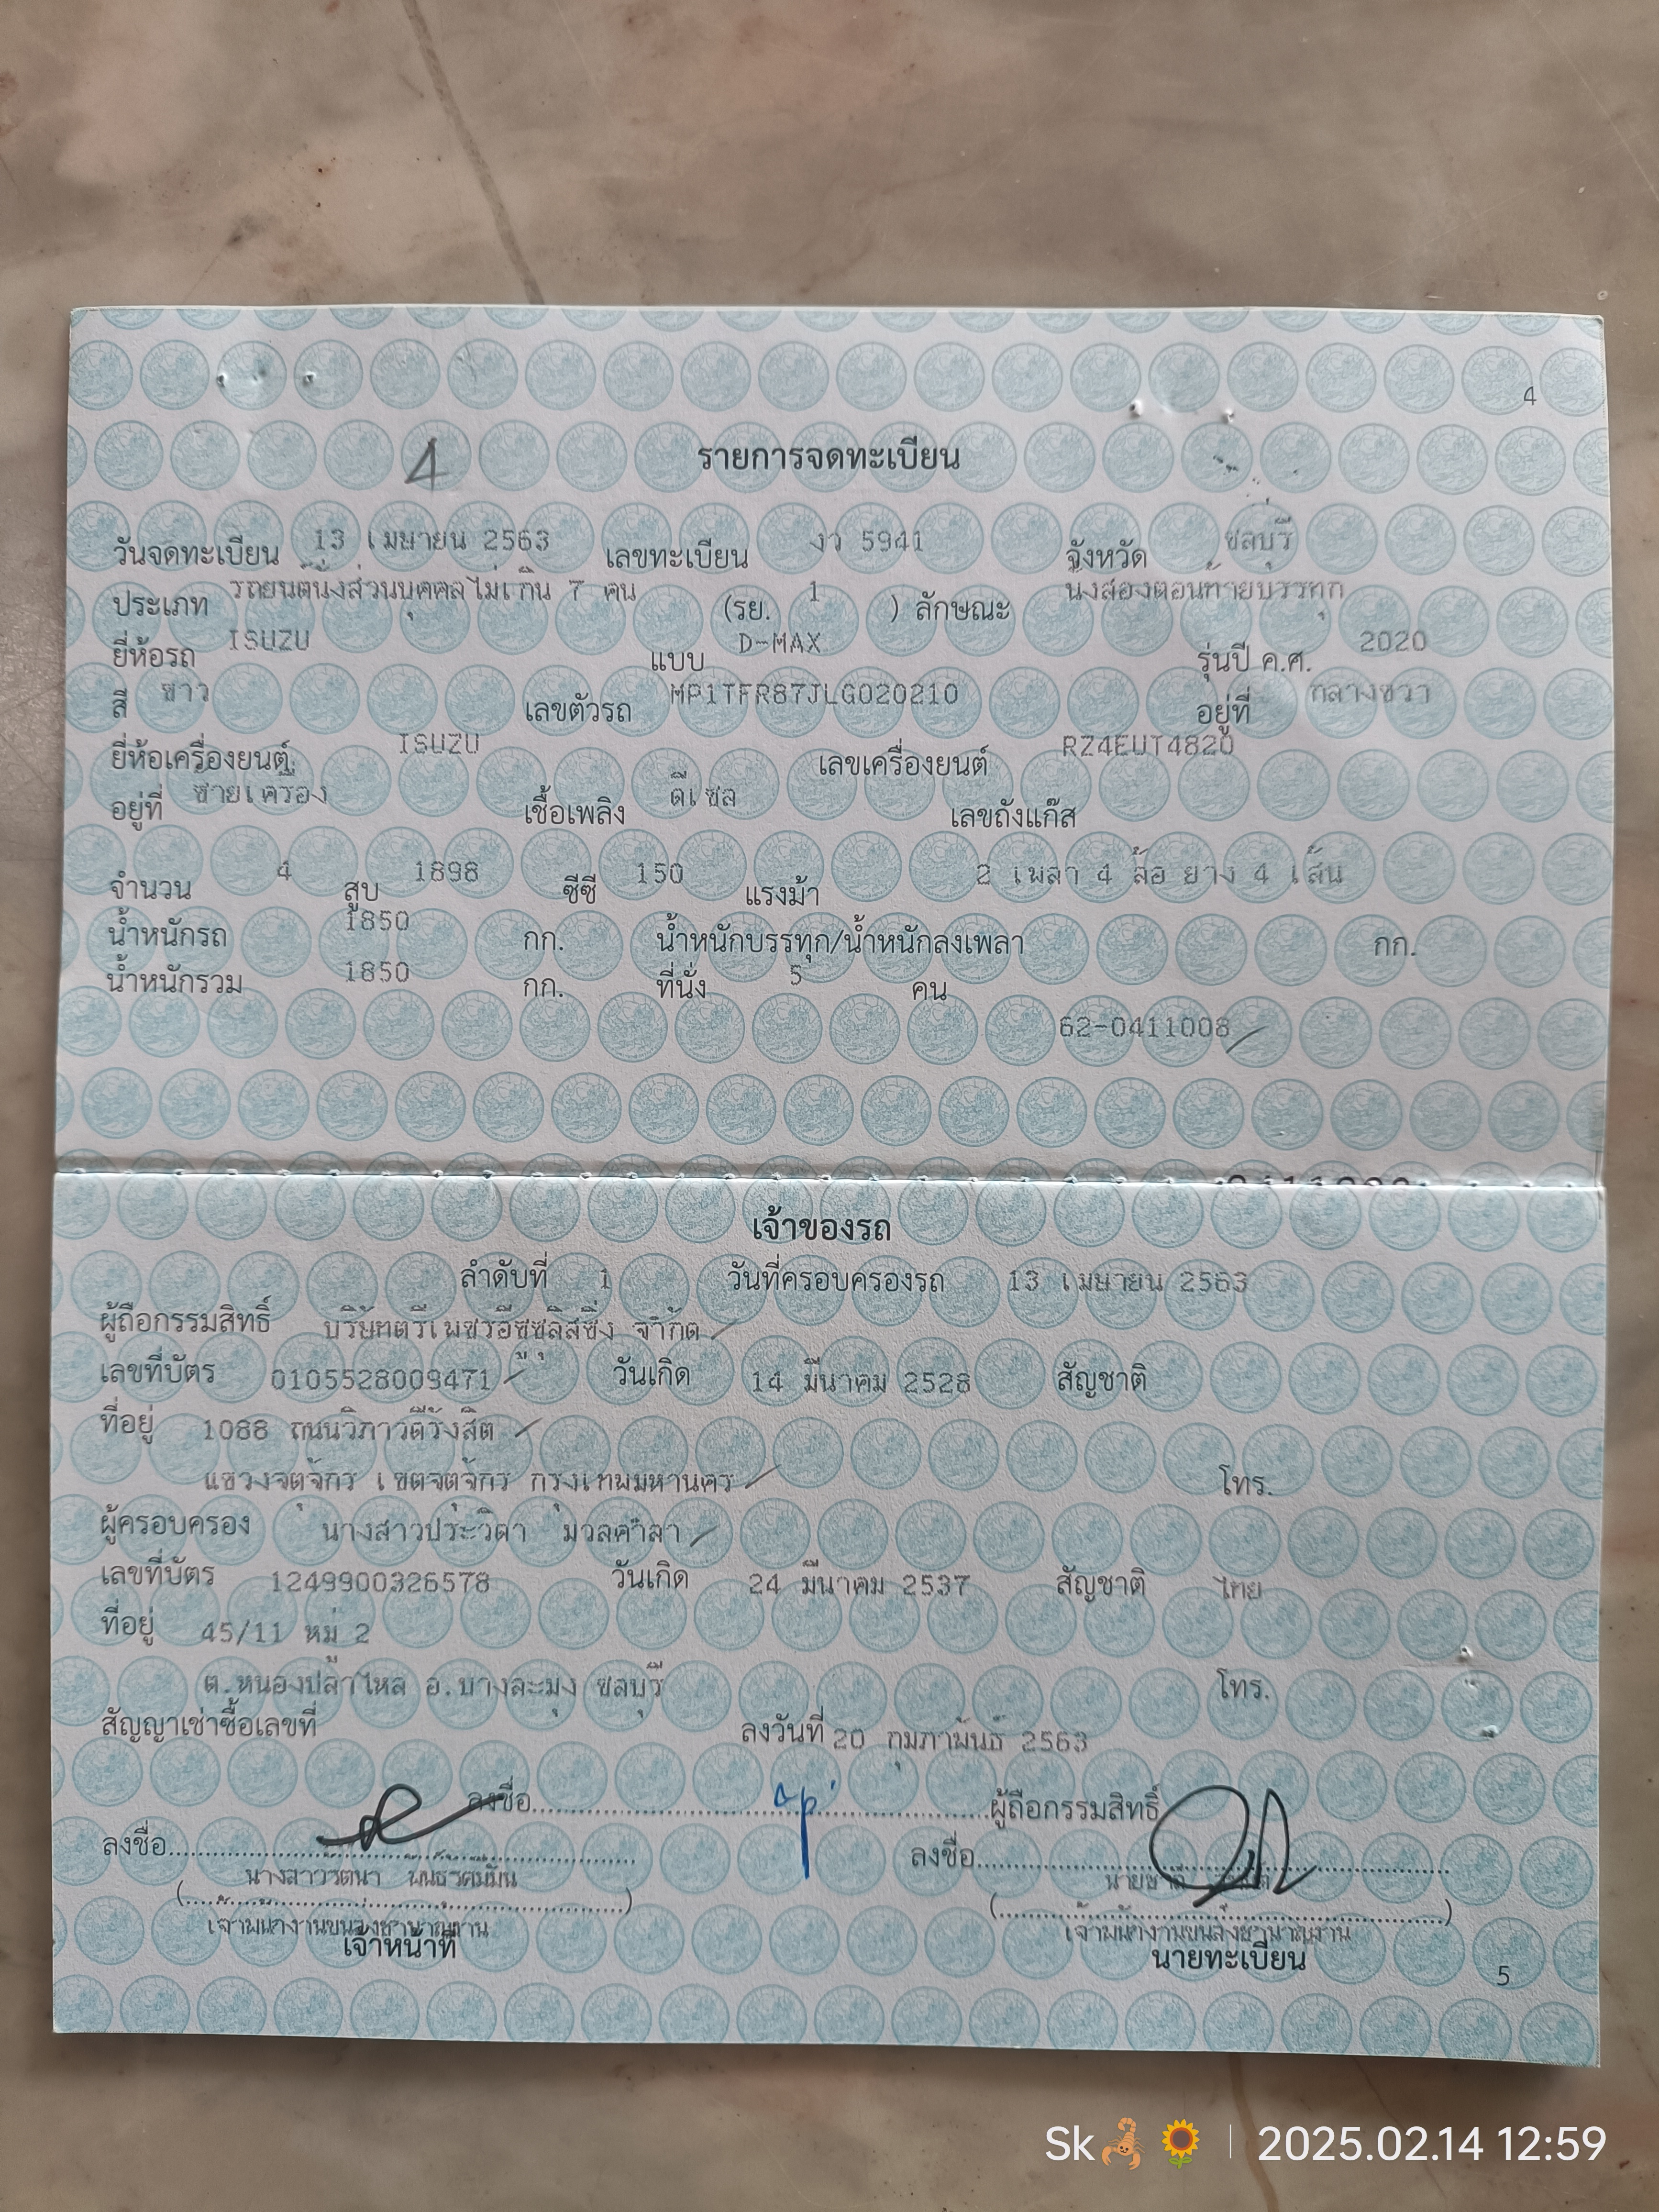 4
4
รายการจดทะเบียน
วันจดทะเบียน 13 เมษายน 2563 เลขทะเบียน งว 5941 จังหวัด ชลบุรี
ประเภท รถยนต์นั่งส่วนบุคคลไม่เกิน 7 คน (รย. 1 ) ลักษณะ นั่งสองตอนท้ายบรรทุก
ยี่ห้อรถ ISUZU แบบ D-MAX รุ่นปี ค.ศ. 2020
สี ขาว เลขตัวรถ MP1TFR87JLG020210 อยู่ที่ กลางขวา
ยี่ห้อเครื่องยนต์ ISUZU เลขเครื่องยนต์ RZ4EUT4820
อยู่ที่ ซ้ายเครื่อง เชื้อเพลิง ดีเซล เลขถังแก๊ส
จำนวน 4 สูบ 1898 ซีซี 150 แรงม้า 2 เพลา 4 ล้อ ยาง 4 เส้น
น้ำหนักรถ 1850 กก. น้ำหนักบรรทุก/น้ำหนักลงเพลา กก.
น้ำหนักรวม 1850 กก. ที่นั่ง 5 คน
62-0411008
เจ้าของรถ
ลำดับที่ 1 วันที่ครอบครองรถ 13 เมษายน 2563
ผู้ถือกรรมสิทธิ์ บริษัทตรีเพชรอีซูซุลิสซิ่ง จำกัด
เลขที่บัตร 0105528009471 วันเกิด 14 มีนาคม 2528 สัญชาติ
ที่อยู่ 1088 ถนนวิภาวดีรังสิต
แขวงจตุจักร เขตจตุจักร กรุงเทพมหานคร โทร.
ผู้ครอบครอง นางสาวประวิดา มูลคำลา
เลขที่บัตร 1249900326578 วันเกิด 24 มีนาคม 2537 สัญชาติ ไทย
ที่อยู่ 45/11 หมู่ 2
ต.หนองปลาไหล อ.บางละมุง ชลบุรี โทร.
สัญญาเช่าซื้อเลขที่ ลงวันที่ 20 กุมภาพันธ์ 2563
ลงชื่อ ผู้ถือกรรมสิทธิ์
ลงชื่อ ลงชื่อ
นางสาวรตนา
เจ้าพนักงานขนส่งชำนาญงาน เจ้าพนักงานขนส่งชำนาญงาน
เจ้าหน้าที่ นายทะเบียน
5
Sk🦂🌻 | 2025.02.14 12:59